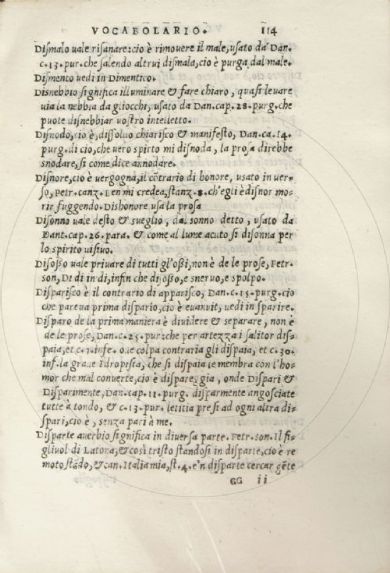 VOCABOLARIO. 114
Dismalo uale risanare: cio è rimouere il male, usato da Dan.
c. 13. pur. che salendo altrui dismala, cio è purga dal male.
Dimento uedi in Dimentico.
Disnebbio significa illuminare & fare chiaro, quasi leuare
uia la nebbia da gliocchi, usato da Dan. cap. 28. purg. che
puote disnebbiar uostro intelletto.
Disnodo, cio è, dissoluo chiarisco & manifesto, Dan. ca. 14.
purg. di cio, che uero spirto mi disnoda, la prosa direbbe
snodare, si come dice annodare.
Disnore, cio è uergogna, il cõtrario di honore, usato in uer-
so, petr. canz. Ben mi credea, stanz. 8. ch'egli è disnor mo
rir fuggendo. Dishonore usa la prosa
Disonno uale desto & sueglio, dal sonno detto, usato da
Dant. cap. 26. para. & come al lume acuto si disonna per
lo spirito uisiuo.
Disosso uale priuare di tutti gl'ossi, non è de le prose, Petr.
son, Di di in di, infin che disosso, e sneruo, e spolpo.
Disparisco è il contrario di apparisco, Dan. c. 15. purg. cio
che pareua prima dispario, cio è euanuit, uedi in sparire.
Disparo de la prima maniera è diuidere & separare, non è
de le prose, Dan. c. 25. pur: che per artezza i salitor dis
paia, et c. 7. infe. o se colpa contraria gli dispaia, et c. 30.
inf. la graue idropesia, che si dispaia le membra con l'ho=
mor che mal conuerte, cio è dispare, gia, onde Dispari &
Disparmente, Dan. cap. 11. purg. disparmente angosciate
tutte à tondo, & c. 13. pur. letitia presi ad ogni altra di=
spari, cio è, senza pari à me.
Disparte auerbio significa in diuersa parte. Petr. son. Il fi=
gliuol di Latona, & cosi tristo standosi in disparte, cio è re
moto stãdo, & can. Italia mia, st. 4. e'n disparte cercar gẽte
GG ii